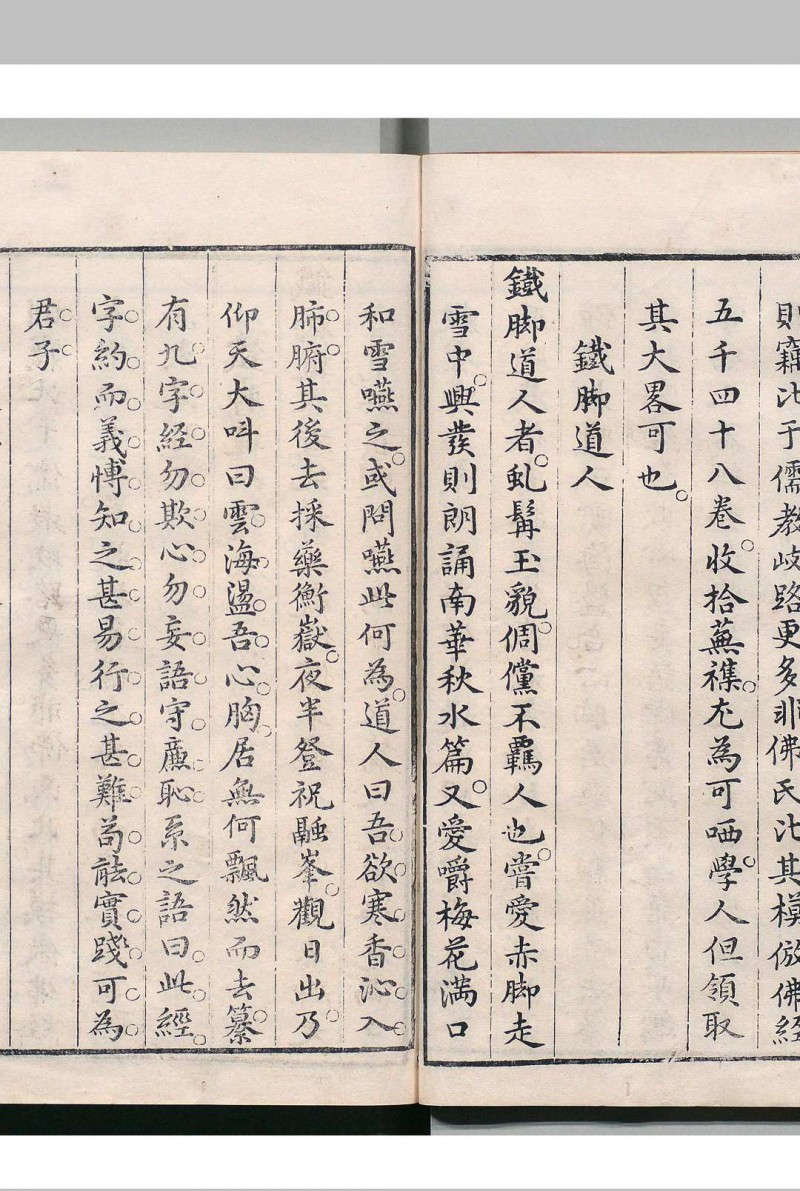 則竊比于儒教岐路更多非佛氏比其模倣佛經
五千四十八卷。收拾蕪襍。尤為可哂。學人但領取
其大畧可也。
鐵脚道人
鐵脚道人者。虬髯玉貌。倜儻不羈人也。嘗愛赤脚走
雪中。興發則朗誦南華秋水篇。又愛嚼梅花滿口
和雪嚥之。或問嚥此何為。道人曰吾欲寒香沁入
肺腑其後去採藥衡嶽。夜半登祝融峯。觀日出乃
仰天大呌曰雲海盪吾心胸。居無何飄然而去纂
有九字經勿欺心勿妄語守廉恥系之語曰此經
字約而義愽知之甚易行之甚難茍能實踐可為
君子